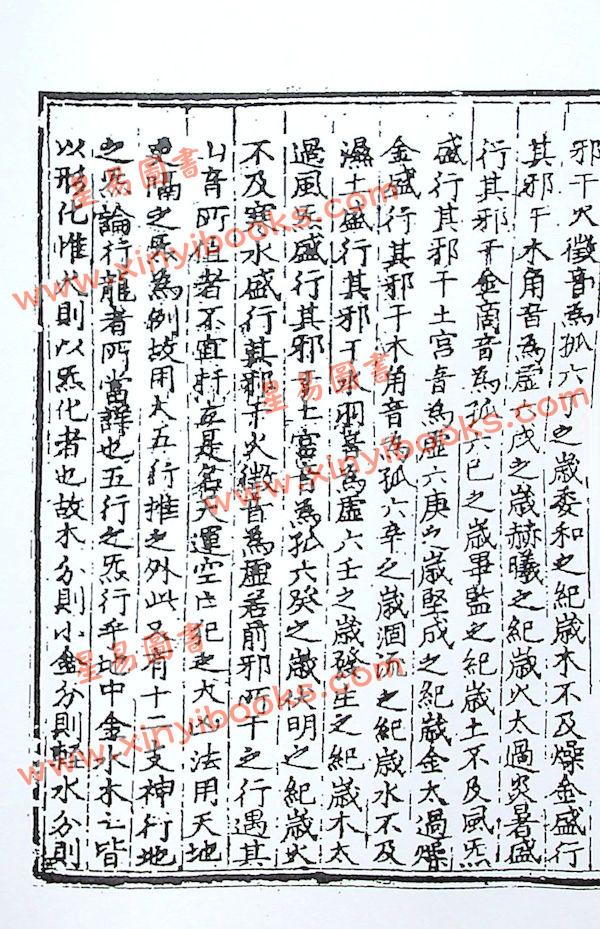 邪干火徵音為孤六丁之歲委和之紀歲木不及燥金盛行
其邪干木角音為虛六戊之歲赫曦之紀歲火太過炎暑盛
行其邪干金商音為孤六己之歲畢監之紀歲土不及風炁
盛行其邪干土宮音為虛六庚之歲堅成之紀歲金太過燥
金盛行其邪干木角音為孤六辛之歲涸流之紀歲水不及
濕土盛行其邪干水羽音為虛六壬之歲發生之紀歲木太
過風炁盛行其邪干土宮音為孤六癸之歲伏明之紀歲火
不及寒水盛行其邪干火徵音為虛若前邪所干之行遇其
山音所值者不宜扦立是名天運空亡犯之大凶法用天地
之炁為例故用大五行推之外此又有十二支神行地
之炁論行龍者所當詳也五行之炁行乎地中金水木土皆
以形化惟火則以炁化者也故木分則小金分則輕水分則
星易圖書
www.xinyibooks.com
星易圖書
www.xinyibooks.com
星易圖書
www.xinyibooks.com